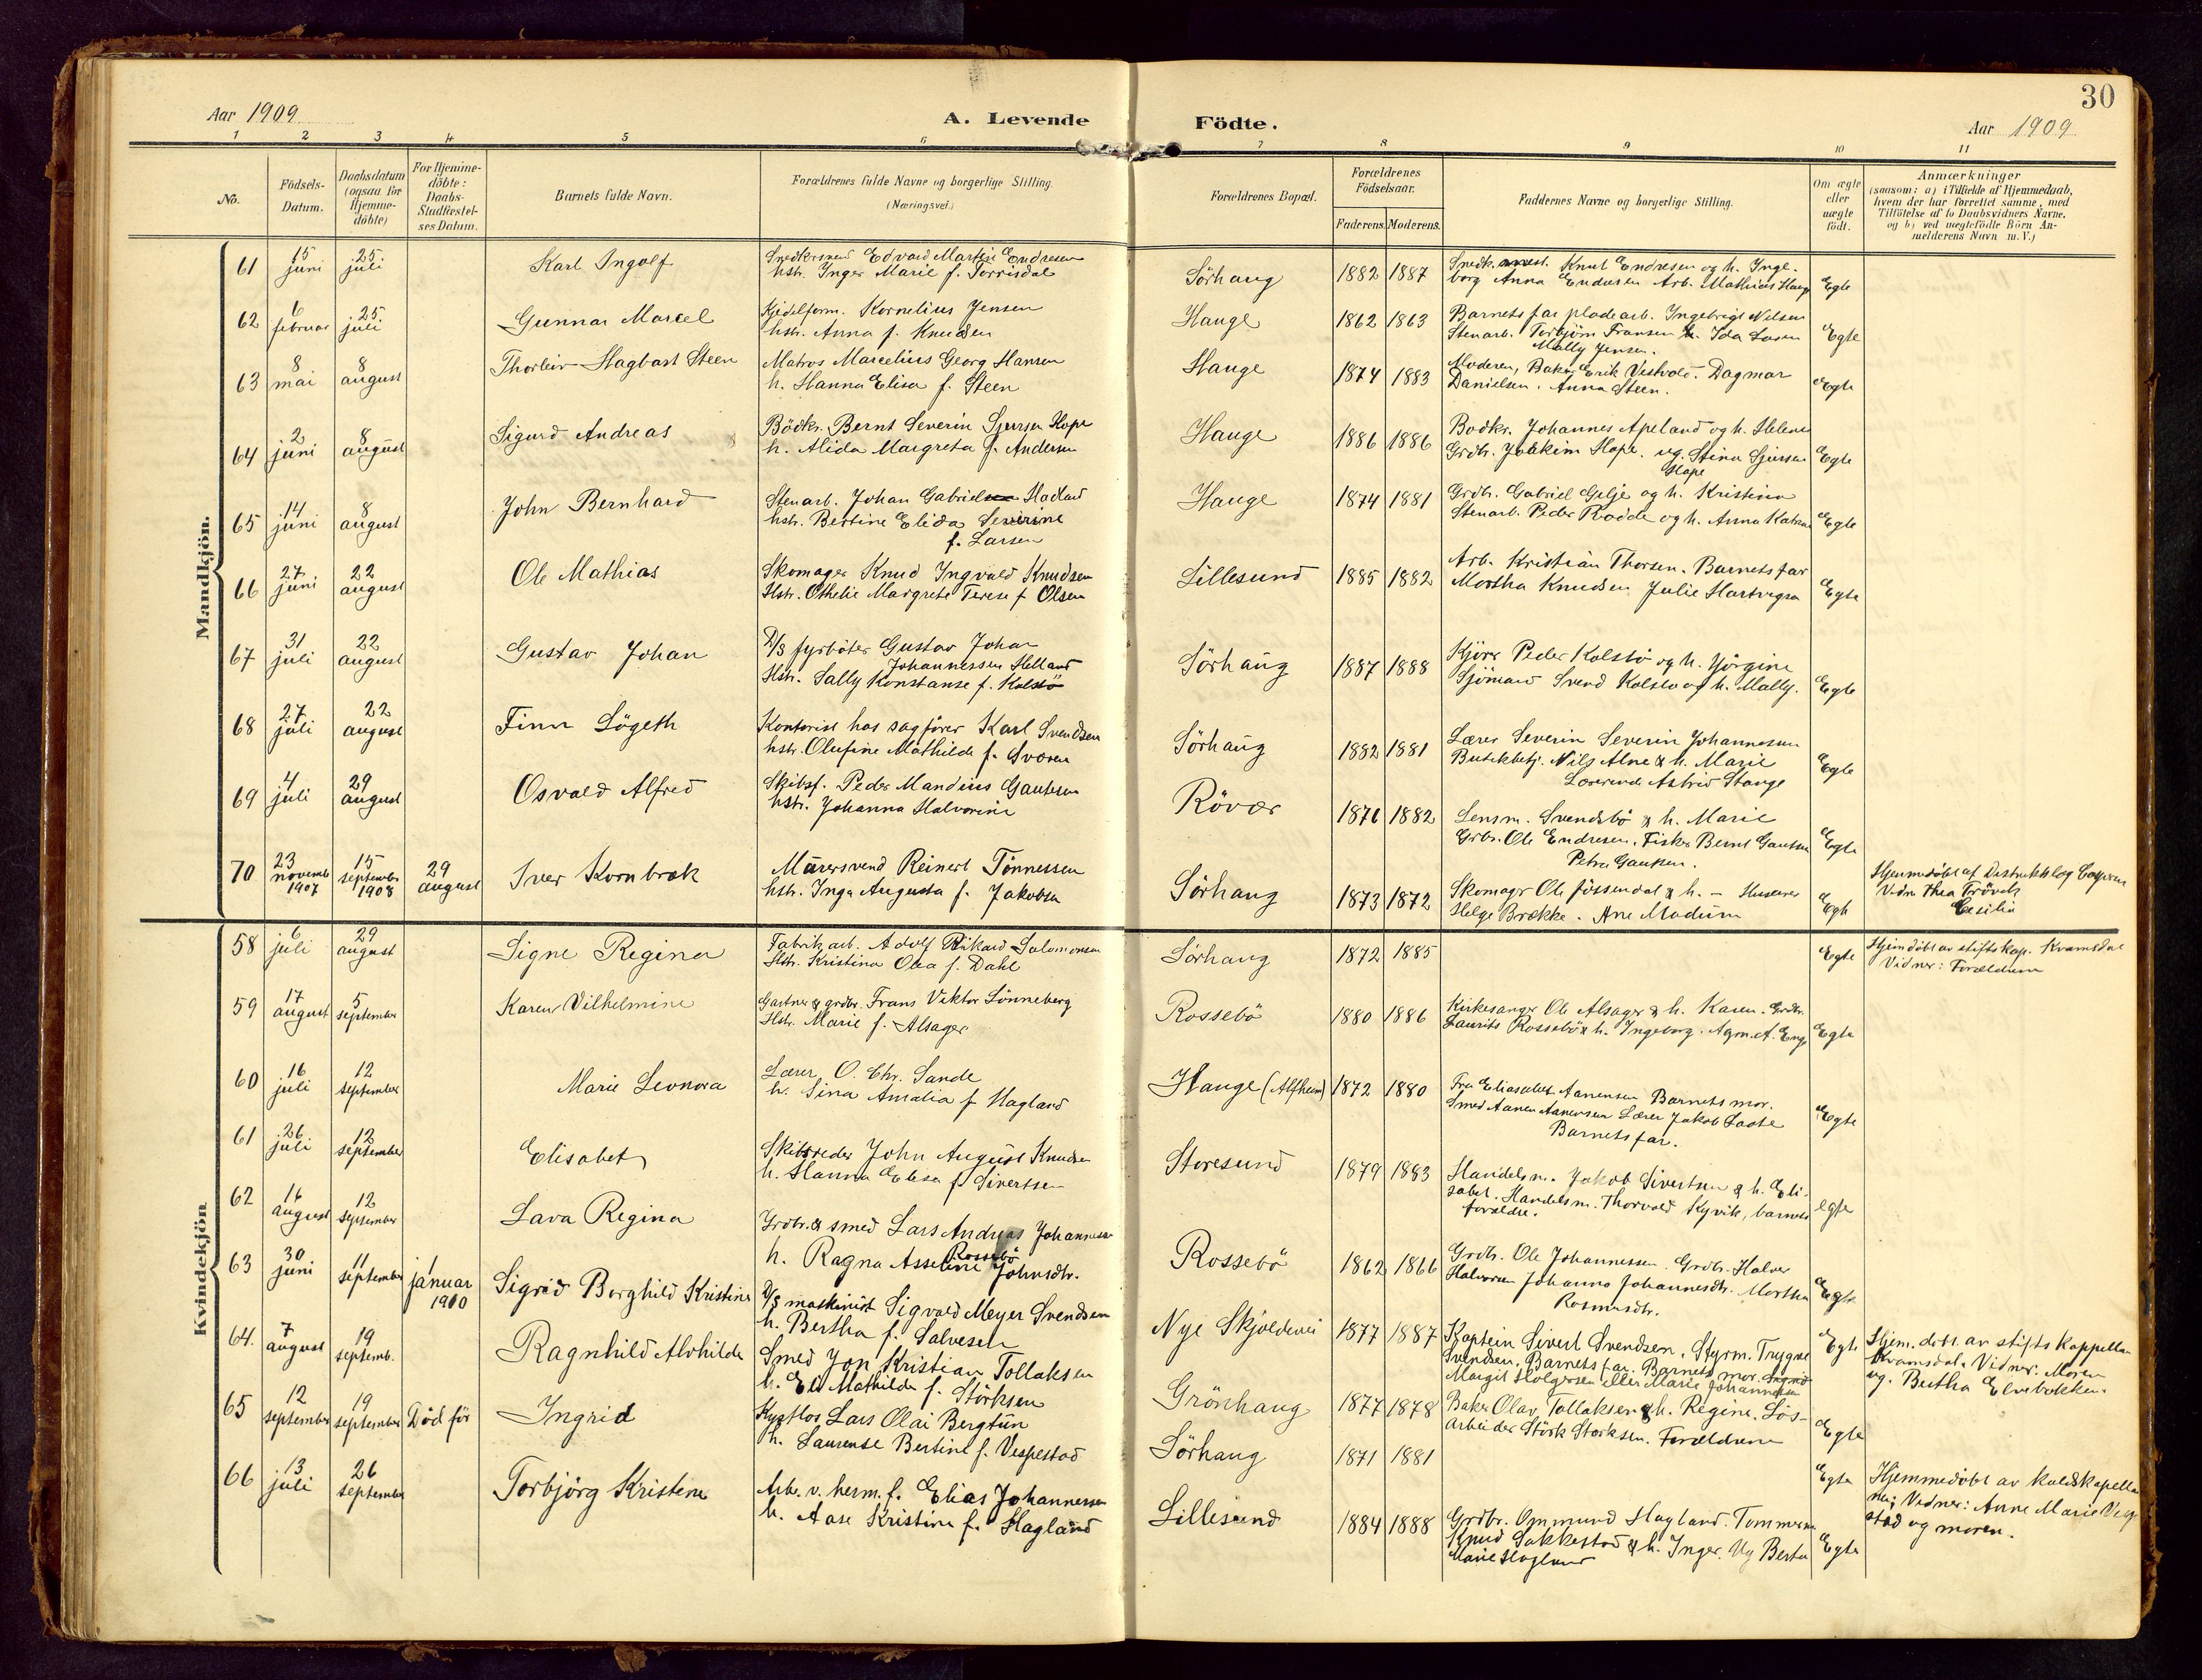 Aar 1909
A. Levende
Födte.
Aar 1909
30
1 2 3 4 5 6 7 8 9 10 11
No.
Födsels-
Datum.
Daabsdatum
(ogsaa for
Hjemme-
döbte)
For Hjemme-
döbte:
Daabs-
Stadfæstel-
ses Datum.
Barnets fulde Navn.
Forældrenes fulde Navne og borgerlige Stilling.
(Næringsvei.)
Forældrenes Bopæl.
Forældrenes
Födselsaar.
Faderens. Moderens.
Faddernes Navne og borgerlige Stilling.
Om ægte
eller
uægte
födt.
Anmærkninger
(saasom: a) i Tilfælde af Hjemmedaab,
hvem der har forrettet samme, med
Tilföielse af to Daabsvidners Navne,
og b) ved uægtefödte Börn An-
melderens Navn m. V.)
Mandkjön.
61 15 juni 25 juli
Karl Ingolf
Edvard Martin Endresen
hstr. Inger Marie f. Torrisdal
Sörhaug
1882 1887
Snedk. Knut Endresen og h. Inge-
borg Anna Endresen Arb. Mathias Haug
Egte
62 6 februar 25 juli
Gunnar Marcel
Kjedelform. Kornelius Jensen
hstr. Anna f. Knudsen
Hauge
1862 1863
Barnets far pladearb. Ingebrigt Nilsen
Stenarb. Torbjörn Fransen h. Ida
Mally Jensen.
Egte
63 8 mai 8 august
Thorleiv Hagbart Steen
Matros Marcelius Georg Hansen
h. Hanna Elisa f. Steen
Hauge
1874 1883
Moderen, Baker Erik Vestvold. Dagmar
Danielsen. Anna Steen.
Egte
64 2 juni 8 august
Sigurd Andreas
Bödkr. Bernt Severin Sjursen Hope
h. Alida Margreta f. Andersen
Hauge
1886 1886
Bodkr. Johannes Apeland og h. Helene
Grdbr. Joakim Hope. ug. Stina Sjursen
Hope
Egte
65 14 juni 8 august
John Bernhard
Stenarb. Johan Gabriel Hadland
hstr. Bertine Elida Severine
f. Larsen
Hauge
1874 1881
Grdbr. Gabriel Gilje og h. Kristina
Stenarb. Peder Rodde og h. Anna Katrina
Egte
66 27 juni 22 august
Ole Mathias
Skomager Knud Ingvald Knudsen
Hstr. Othelie Margrete Terese f. Olsen
Lillesund
1885 1882
Arb. Kristian Thorsen. Barnets far
Martha Knudsen Julie Hartvigsen
Egte
67 31 juli 22 august
Gustav Johan
D/S fyrböter Gustav Johan
Johannessen Helland
Hstr. Sally Konstanse f. Kolstö
Sörhaug
1887 1888
Kjörer Peder Kolstö og h. Jörgine
Sjömand Svend Kolstö og h. Mally.
Egte
68 27 juli 22 august
Finn Lögeth
Kontorist hos sagförer Karl Svendsen
hstr. Olufine Mathilde f. Svoren
Sörhaug
1882 1881
Lærer Severin Severin Johannessen
Butikbetj. Nils Alne & h. Marie
Lærerinde Astrid Stange
Egte
69 4 juli 29 august
Osvald Alfred
Skibsf. Peder Mandius Gautesen
hstr. Johanna Halvorine
Rövær
1871 1882
Lensm. Svendsbö & h. Marie
Grbr. Ole Endresen. Fisker Bernt Gautsen
Petra Gautsen.
Egte
70 23 novemb 1907 15 septembr 1908 29 august
Iver Kornbræk
Murersvend Reinert Tönnessen
hstr. Inga Augusta f. Jakobsen
Sörhaug
1873 1872
Skomagr Ole Jössendal & h. - Huseier
Helge Brække. Ane Madum
Egte
Hjemmedöbt af Distriktslæg
Vidn Thea
Cesilie
Kvindekjön
58 6 juli 29 august
Signe Regina
Fabrikarb. Adolf Rikard Salomonsen
Hstr. Kristina Olea f. Dahl
Sörhaug
1872 1885
Egte
Hjemdöbt av stiftskap. Kvamsdal
Vidner: Forældrene
59 17 august 5 september
Karen Vilhelmine
Gartner & grdbr. Frans Viktor Lönneberg
Hstr. Marie f. Alsager
Rossebö
1880 1886
Kirkesanger Ole Alsager & h. Karen. Grdbr.
Laurits Rossebö & h. Ingeborg. Agm. A. Enge
Egte
60 16 juli 12 september
Marie Leonora
Lærer O. Chr. Sande
h. Sina Amalia f. Hagland
Hauge (Alfheim)
1872 1880
Fru Eliasabet Aanensen Barnets mor.
Smed Aanen Aanensen Lærer Jakob
Barnets far.
Egte
61 26 juli 12 september
Elisabet
Skibsreder John August Knudsen
h. Hanna Elisa f. Sivertsen
Storesund
1879 1883
Handelsm. Jakob Sivertsen & h. Eli-
sabet. Handelsm. Thorvald Kyvik, barnets
forældre.
egte
62 16 august 12 september
Lava Regina
Grdbr. & smed Lars Andreas Johannessen
Rossebö
h. Ragna Asseline Johnsdtr.
Rossebö
1862 1866
Grdbr. Ole Johannessen. Grdbr. Halvor
Halvorsen Johanna Johannesdtr. Martha
Rasmusdtr.
Egte
63 30 juni 11 september 1 januar 1910
Sigrid Borghild Kristine
D/S maskinist Sigvald Meyer Svendsen
h. Bertha f. Salvesen
Nye Skjoldevei
1877 1887
Kaptein Sivert Svendsen. Styrm. Trygve
Svendsen. Barnets far. Barnets mor.
Margit Holgersen eller Marie Johannesen
Egte
Hjem. döbt av stiftskappellan
Kvamsdal. Vidner. Moren
ug. Bertha Elvebakken.
64. 7 august 19 septemb.
Ragnhild Alvhilde
Smed Jon Kristian Tollaksen
h. Eli Mathilde f. Störksen
Grönhaug
1877 1878
Baker Olav Tollaksen & h. Regine. Lös-
arbeider Störk Störksen. Forældrene
Egte
65 12 september 19 september Död för
Ingrid
Lars Olai Bergtun
h. Laurense Bertine f. Vespestad
Sörhaug
1871 1881
Egte
Hjemmedöbt av kaldskapellan
Vidner: Anne Marie Vesp
stad og moren.
66 13 juli 26 september
Torbjörg Kristine
Arb. v. herm. f. Elias Johannessen
h. Aase Kristine f. Hagland
Lillesund
1884 1888
Grdbr. Ommund Hagland. Tommerm
Knud Sakkestad & h. Inger. Ug Berta
Marie Hagland
Egte